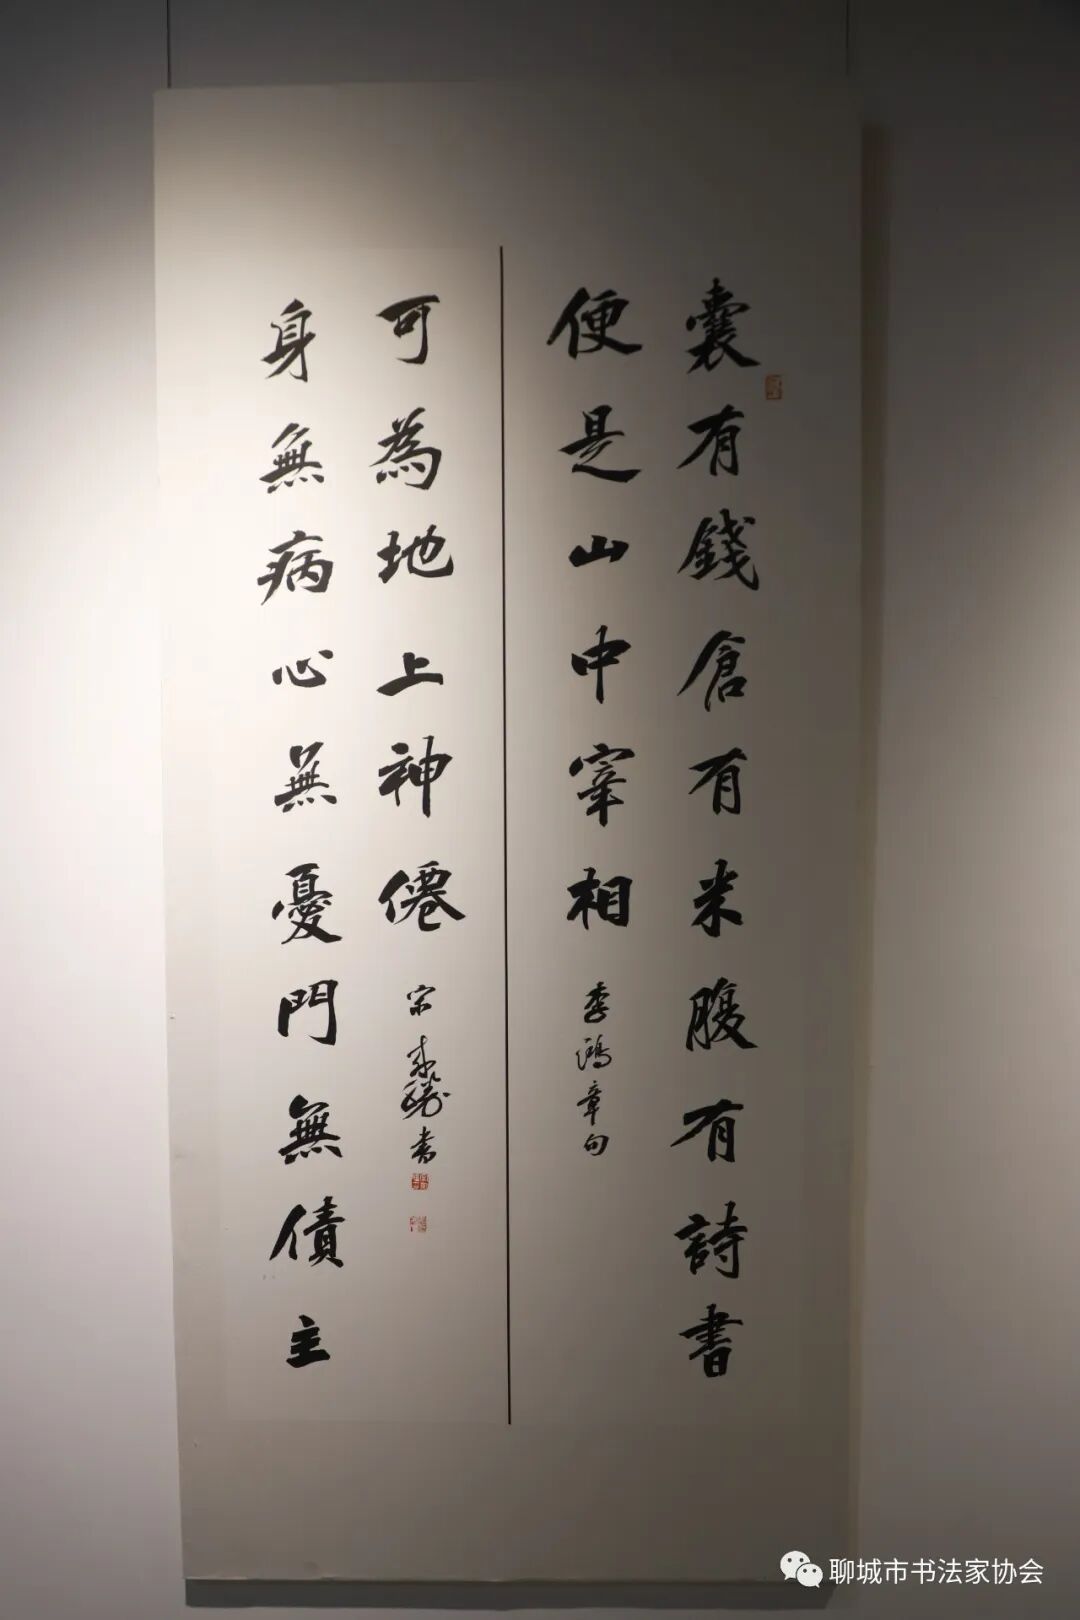 囊有錢倉有米腹有詩書
便是山中宰相
李鴻章句
身無病心無憂門無債主
可為地上神僊
宋 勝書
聊城市书法家协会